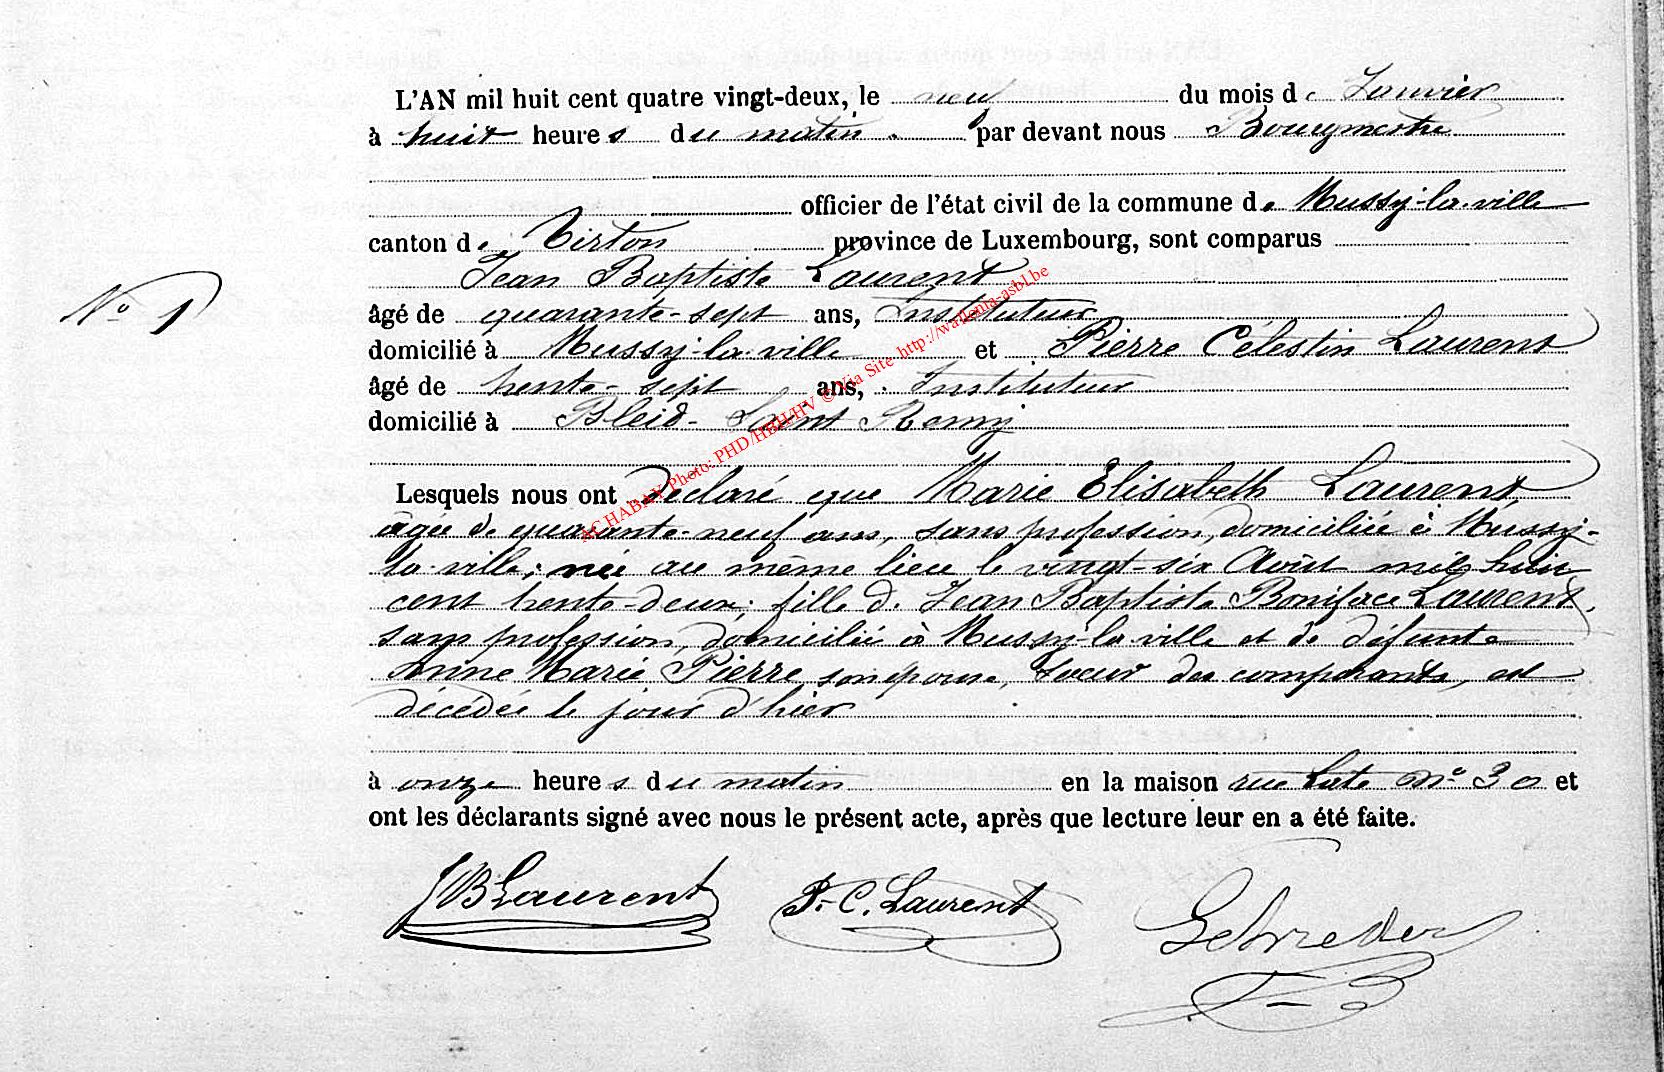 L'AN mil huit cent quatre vingt-deux, le neuf du mois de Janvier
à huit heures du matin. par devant nous Bourgmestre
officier de l'état civil de la commune de Mussy-la-ville
canton de Virton province de Luxembourg, sont comparus
Jean Baptiste Laurent
N° 1
âgé de quarante-sept ans, Instituteur
domicilié à Mussy-la-ville et Pierre Célestin Laurent
âgé de trente-sept ans, Instituteur
domicilié à Bleid-Saint Remy
Lesquels nous ont Déclaré que Marie Elisabeth Laurent,
âgée de quarante-neuf ans, sans profession, domiciliée à Mussy-
la-ville; née au même lieu le vingt-six Août mil huit
cent trente-deux; fille de Jean Baptiste Boniface Laurent,
sans profession, domicilié à Mussy-la-ville et de défunte
Anne Marie Pierre son épouse, Soeur des comparants, est
décédée le jour d'hier
à onze heures du matin en la maison rue N° 30 et
ont les déclarants signé avec nous le présent acte, après que lecture leur en a été faite.
JB Laurent P.-C. Laurent
AC HABAY Photo: PHD/HBH/HV © Via Site http://wallonia-asbl.be